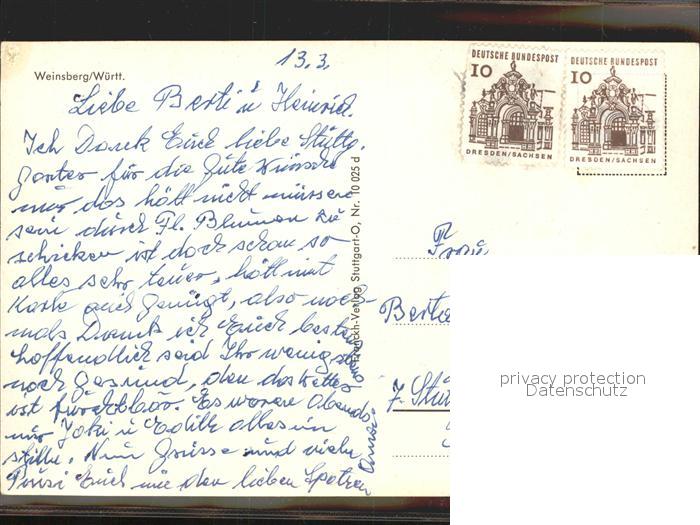 Weinsberg/Württ.
13.3.
Liebe Berti u Heinrich.
Ich Dank Euch liebe Stuttg.
garter für die Gute Wünsche
nur das hätt nicht müssen
sein durch Fl. Blumen zu
schicken ist doch schon so
alles sehr teuer, hätt mit
Karte auch genügt, also noch-
mals Dank ich Euch besten
hoffendlich seid Ihr wenigst
noch gesund, den das Wetter
ist fürchtbar. Es waren Abends
nur u Edith alles in
stille. Nun Grüsse und viele
Euch wie den lieben Spatzen
Franckh-Verlag, Stuttgart-O, Nr. 10 025 d
DEUTSCHE BUNDESPOST
10
DRESDEN/SACHSEN
DEUTSCHE BUNDESPOST
10
DRESDEN/SACHSEN
Frau
Berta
7. Stu
privacy protection
Datenschutz